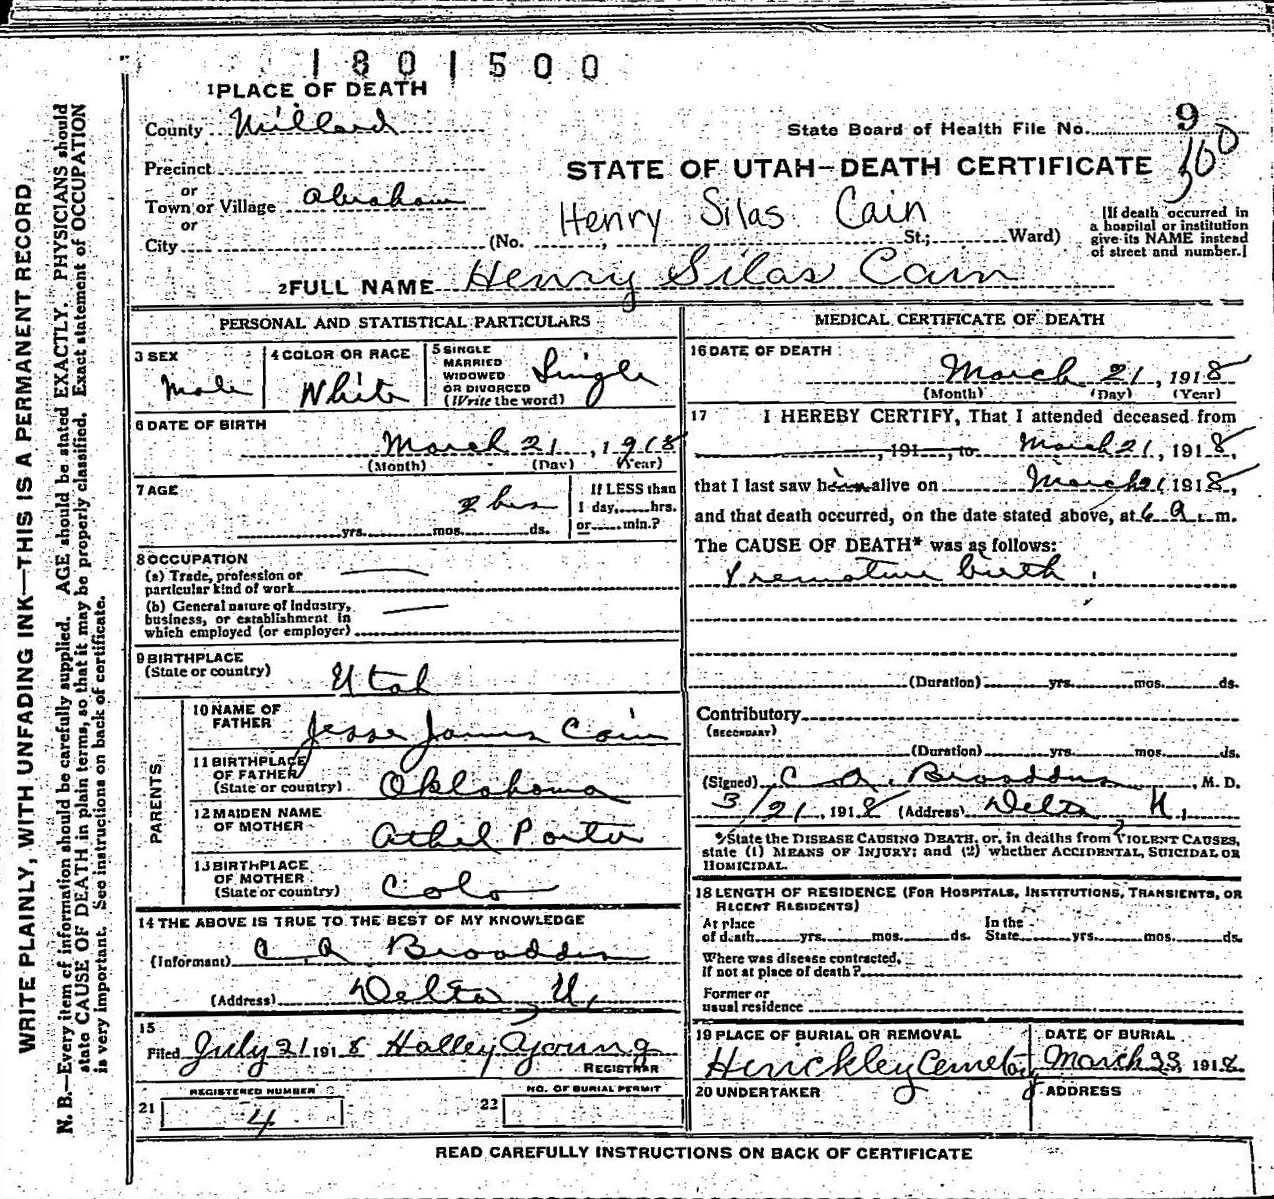 1801500
1 PLACE OF DEATH
County Millard
State Board of Health File No. 9
300
Precinct
STATE OF UTAH—DEATH CERTIFICATE
or
Town or Village Abraham
or
City
Henry Silas Cain
(No. , St.; Ward)
[If death occurred in
a hospital or institution
give its NAME instead
of street and number.]
2 FULL NAME Henry Silas Cain
PERSONAL AND STATISTICAL PARTICULARS
3 SEX
Male
4 COLOR OR RACE
White
5 SINGLE
MARRIED
WIDOWED
OR DIVORCED
(Write the word)
Single
6 DATE OF BIRTH
March 21, 1918
(Month) (Day) (Year)
7 AGE
2 hrs
yrs. mos. ds.
If LESS than
1 day, hrs.
or min.?
8 OCCUPATION
(a) Trade, profession or
particular kind of work
(b) General nature of Industry,
business, or establishment in
which employed (or employer)
9 BIRTHPLACE
(State or country)
Utah
PARENTS
10 NAME OF
FATHER
Jesse James Cain
11 BIRTHPLACE
OF FATHER
(State or country)
Oklahoma
12 MAIDEN NAME
OF MOTHER
Athel Porter
13 BIRTHPLACE
OF MOTHER
(State or country)
Colo
14 THE ABOVE IS TRUE TO THE BEST OF MY KNOWLEDGE
(Informant) C. A. Broaddus
(Address) Delta, U,
15
Filed July 21 1918 Halley Young
REGISTRAR
REGISTERED NUMBER
21 4
NO. OF BURIAL PERMIT
22
MEDICAL CERTIFICATE OF DEATH
16 DATE OF DEATH
March 21, 1918
(Month) (Day) (Year)
17 I HEREBY CERTIFY, That I attended deceased from
, 191 , to March 21, 1918,
that I last saw him alive on March 21 1918,
and that death occurred, on the date stated above, at 6 a. m.
The CAUSE OF DEATH* was as follows:
Premature birth.
(Duration) yrs. mos. ds.
Contributory
(SECONDARY)
(Duration) yrs. mos. ds.
(Signed) C. A. Broaddus, M. D.
3/21, 1918 (Address) Delta U,
*State the DISEASE CAUSING DEATH, or, in deaths from VIOLENT CAUSES,
state (1) MEANS OF INJURY; and (2) whether ACCIDENTAL, SUICIDAL OR
HOMICIDAL.
18 LENGTH OF RESIDENCE (FOR HOSPITALS, INSTITUTIONS, TRANSIENTS, OR
RECENT RESIDENTS)
At place
of death yrs. mos. ds.
In the
State yrs. mos. ds.
Where was disease contracted,
if not at place of death?
Former or
usual residence
19 PLACE OF BURIAL OR REMOVAL
Hinckley Cemetery
DATE OF BURIAL
March 23 1918
20 UNDERTAKER
ADDRESS
READ CAREFULLY INSTRUCTIONS ON BACK OF CERTIFICATE
WRITE PLAINLY, WITH UNFADING INK—THIS IS A PERMANENT RECORD
N. B.—Every item of information should be carefully supplied. AGE should be stated EXACTLY. PHYSICIANS should
state CAUSE OF DEATH in plain terms, so that it may be properly classified. Exact statement of OCCUPATION
is very important. See instructions on back of certificate.